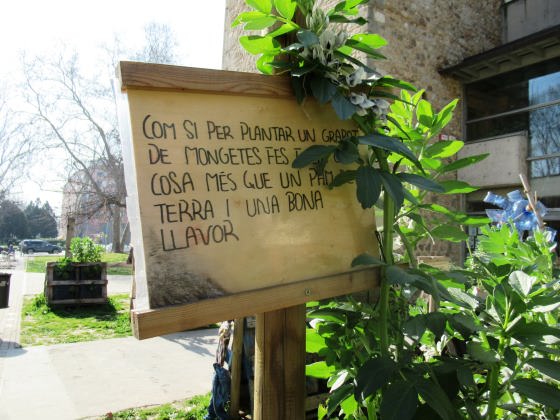 COM SI PER PLANTAR UN GRAPAT
DE MONGETES FES
COSA MÉS QUE UN PAM
TERRA I UNA BONA
LLAVOR